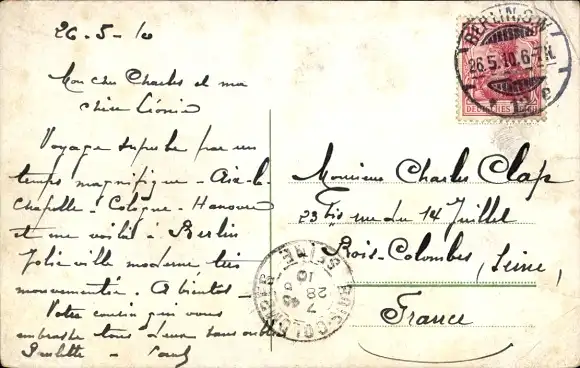 26-5-10
Mon cher Charles et ma
chère Léonie
Voyage superbe par un
temps magnifique - Aix-la-
Chapelle - Cologne - Hanovre
et me voilà à Berlin
Jolie ville moderne, très
mouvementée. A bientôt -
Votre cousin qui vous
embrasse tous deux sans oublier
Paulette -
BERLIN S.W.
26.5.10.6-7N.
DEUTSCHES REICH
Monsieur Charles Clap
23 bis rue du 14 Juillet
Bois-Colombes (Seine)
France
BOIS-COLOMBES
SEINE
7 45
28
5
10